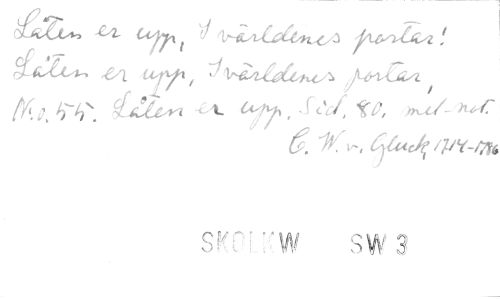 Låten er upp, I världenes portar!
Låten er upp, I världenes portar,
N:o. 55. Låten er upp. Sid. 80. mel-not.
C. W. v. Gluck, 1714-1786
SKOLKW SW 3